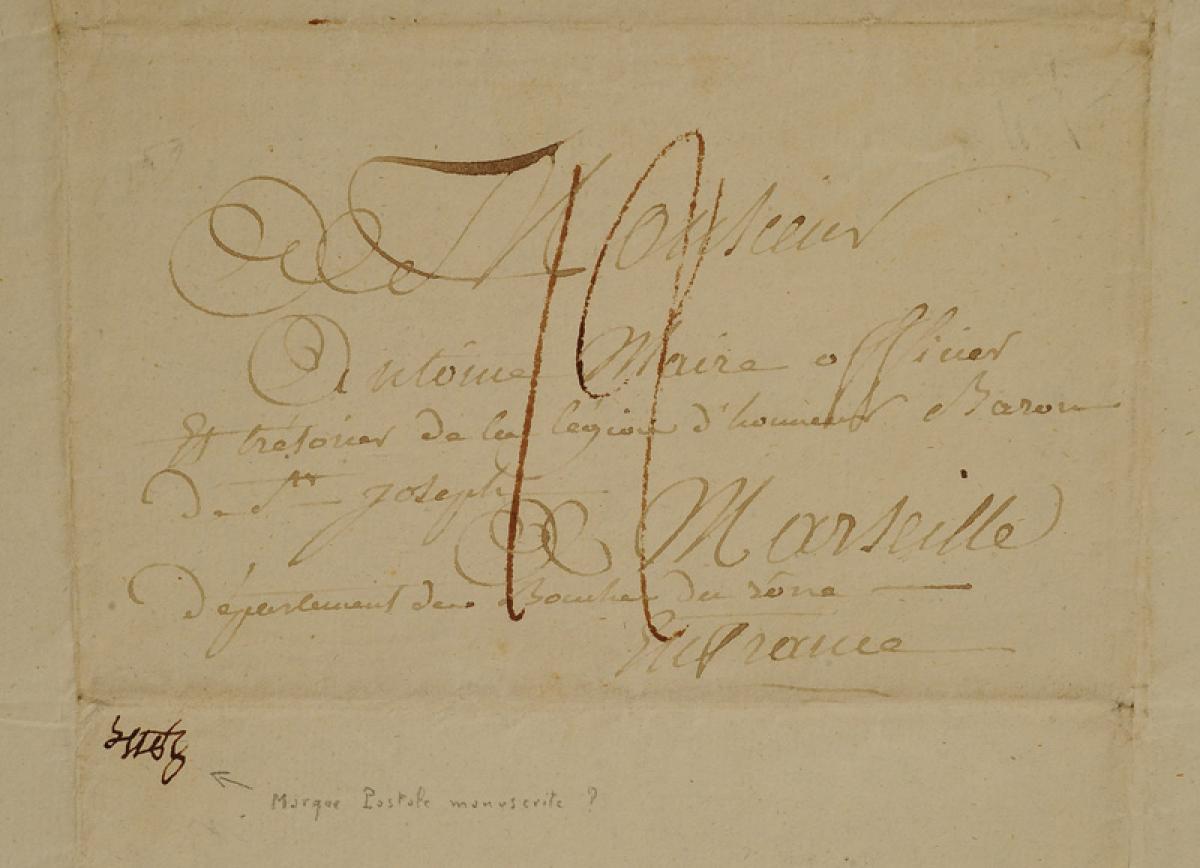 A Monsieur
Antoine Maire officier
Et trésorier de la légion d'honneur Baron
De St Joseph
A Marseille
Département des Bouches du rône
En france
Marque Postale manuscrite ?